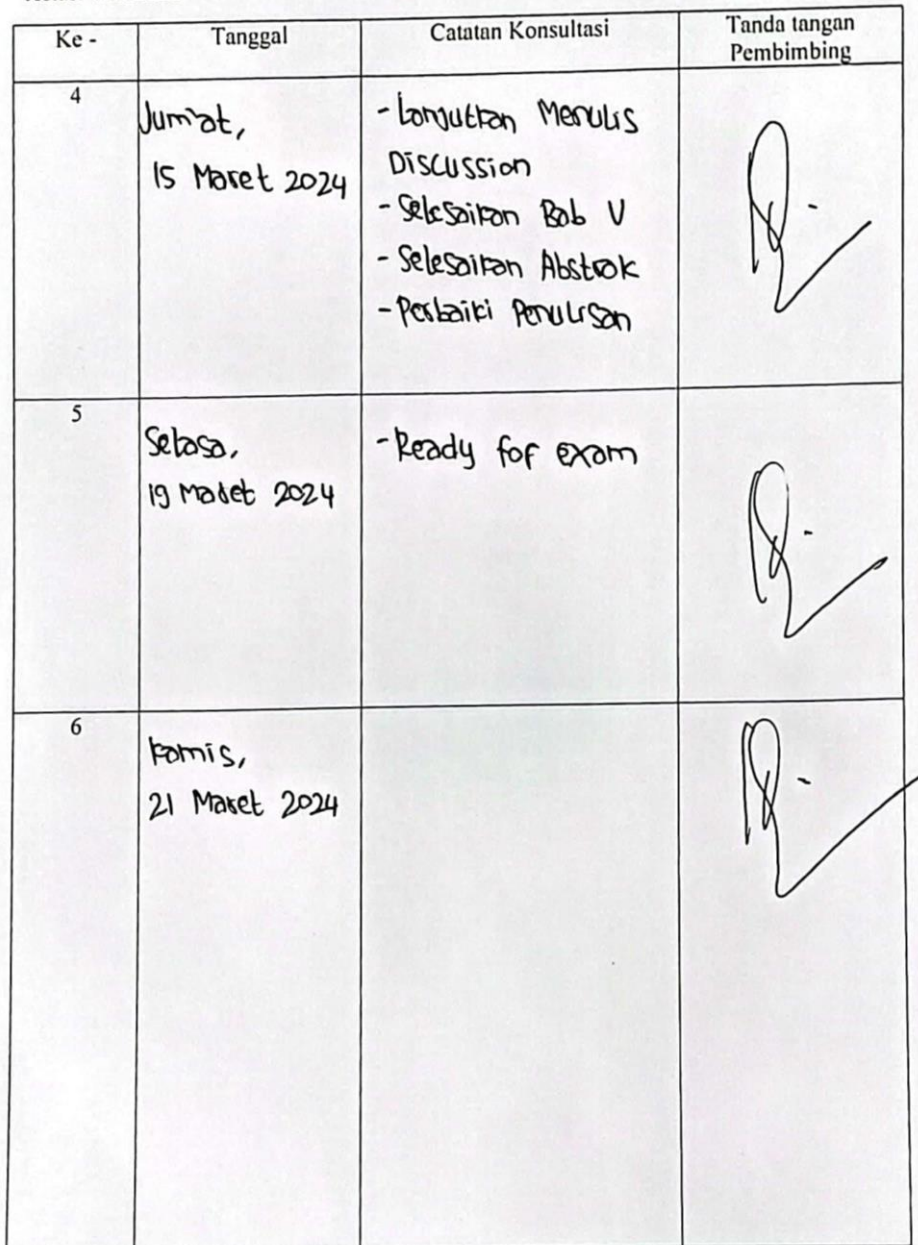 Ke - Tanggal Catatan Konsultasi Tanda tangan
Pembimbing
4
Jum'at,
15 Maret 2024
- Lanjutkan Menulis
Discussion
- Selesaikan Bab V
- Selesaikan Abstrak
- Perbaiki Penulisan
5
Selasa,
19 Maret 2024
- Ready for exam
6
Kamis,
21 Maret 2024